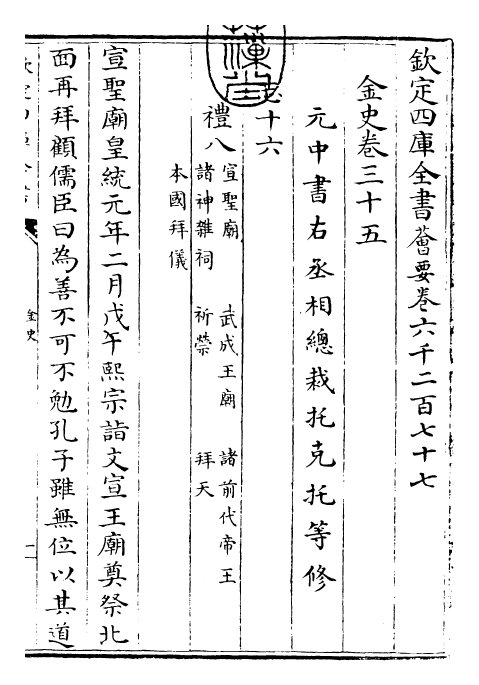 欽定四庫全書薈要卷六千二百七十七
金史卷三十五
元中書右丞相總裁托克托等修
志十六
禮八
宣聖廟
武成王廟
諸前代帝王
諸神雜祠
祈禜
拜天
本國拜儀
宣聖廟皇統元年二月戊午熙宗詣文宣王廟奠祭北
面再拜顧儒臣曰為善不可不勉孔子雖無位以其道
金史